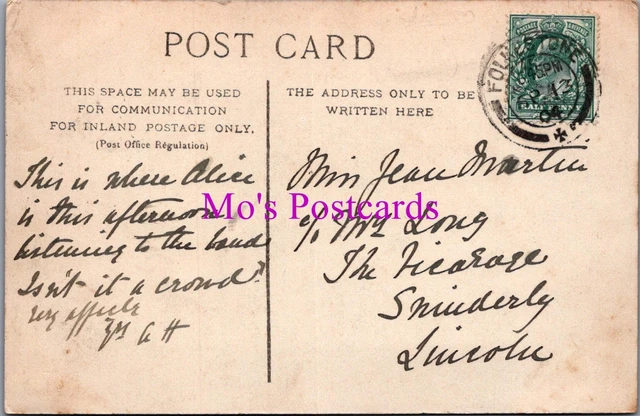 POST CARD
THIS SPACE MAY BE USED
FOR COMMUNICATION
FOR INLAND POSTAGE ONLY.
(Post Office Régulation)
This is where Alice
is this afternoon
listening to the band
Isn't it a crowd?
THE ADDRESS ONLY TO BE
WRITTEN HERE
FOLKESTONE
Miss Jean Martin
c/o Mrs Long
The Vicarage
Swinderby
Lincoln
Mo's Postcards